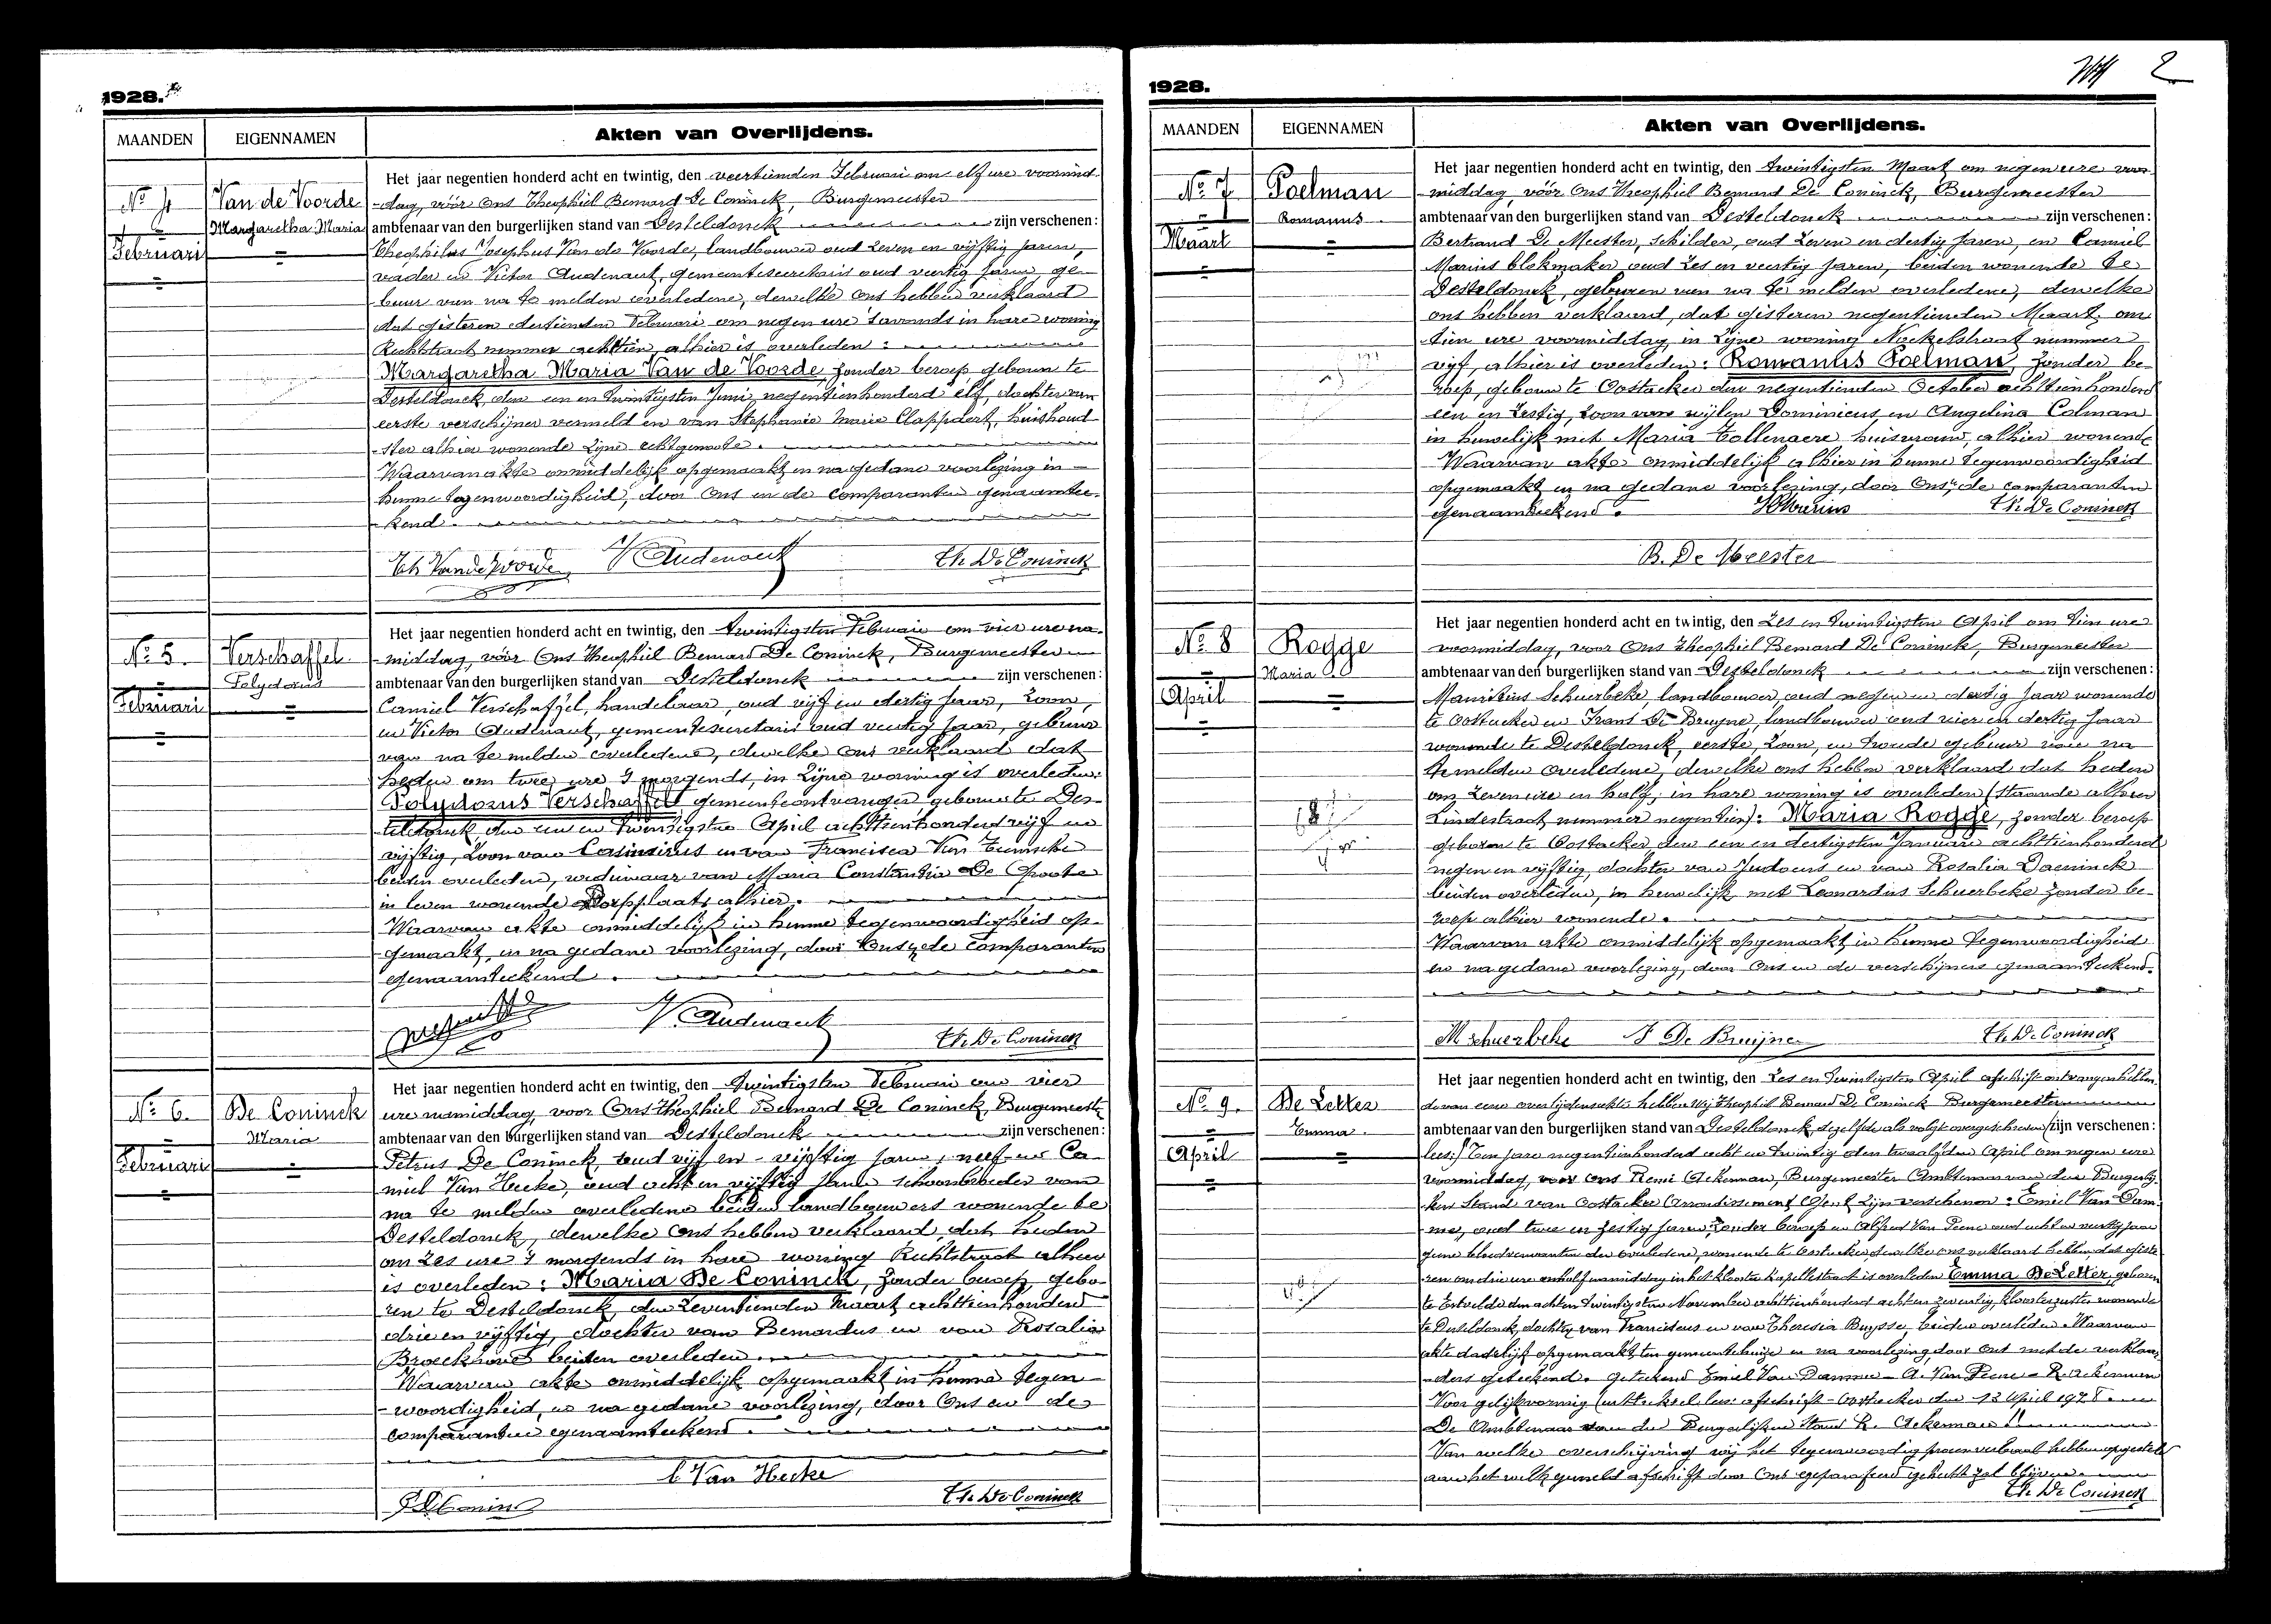 1928.
MAANDEN EIGENNAMEN Akten van Overlijdens.
Nº 4
Februari
Van de Voorde
Margaretha Maria
Het jaar negentien honderd acht en twintig, den veertienden Februari om elf ure voormid-
-dag, vóór Ons Theophiel Bernard De Coninck, Burgemeester
ambtenaar van den burgerlijken stand van Desteldonck zijn verschenen:
Theophilus Josephus Van de Voorde, landbouwer oud zeven en vijftig jaren,
vader en Victor Audenaert, gemeentesecretaris oud veertig jaren, ge-
buur van na te melden overledene, dewelke ons hebben verklaard
dat gisteren dertienden Februari om negen ure 's avonds in hare woning
Rechtstraat nummer achttien, alhier is overleden:
Margaretha Maria Van de Voorde, zonder beroep geboren te
Desteldonck, den een en twintigsten Juni negentienhonderd elf, dochter van
eerste verschijner vermeld en van Stephanie Marie Clappdort, huishoud-
-ster alhier wonende zijne echtgenoote.
Waarvan akte onmiddelijk opgemaakt en na gedane voorlezing in
hunne tegenwoordigheid, door Ons en de comparanten genaamtee-
kend.
Th Vandevoorde V Audenaert Th. De Coninck
Nº 5.
Februari
Verschaffel
Polydorus
Het jaar negentien honderd acht en twintig, den twintigsten Februari om vier ure na-
-middag, vóór Ons Theophiel Bernard De Coninck, Burgemeester
ambtenaar van den burgerlijken stand van Desteldonck zijn verschenen:
Camiel Verschaffel, handelaar, oud vijf en dertig jaar, zoon,
en Victor Audenaert, gemeentesecretaris oud veertig jaar, gebuur
van na te melden overledene, dewelke ons verklaard dat
heden om twee ure 's morgends, in zijne woning is overleden:
Polydorus Verschaffel gemeenteontvanger geboren te Des-
teldonck, den een en twintigsten April achttienhonderd vijf en
vijftig, zoon van Casimirus en van Francisca Van Temsche
beiden overleden, weduwaar van Maria Constantia De Groote
in leven wonende Dorpplaats alhier.
Waarvan akte onmiddelijk in hunne tegenwoordigheid op-
gemaakt, en na gedane voorlezing, door Ons en de comparanten
genaamteekend.
V. Audenaert Th. De Coninck
Nº 6.
Februari
De Coninck
Maria
Het jaar negentien honderd acht en twintig, den twintigsten Februari om vier
ure namiddag, voor Ons Theophiel Bernard De Coninck, Burgemeester
ambtenaar van den burgerlijken stand van Desteldonck zijn verschenen:
Petrus De Coninck, oud vijf en vijftig jaren, neef en Ca-
miel Van Hecke, oud acht en vijftig jaren schoonbroeder van
na te melden overledene beiden landbouwers wonende te
Desteldonck, dewelke Ons hebben verklaard, dat heden
om zes ure 's morgends in hare woning Rechtstraat alhier
is overleden: Maria De Coninck, zonder beroep, gebo-
ren te Desteldonck, den zeventienden Maart achttienhonderd
drie en vijftig, dochter van Bernardus en van Rosalia
beiden overleden.
Waarvan akte onmiddelijk opgemaakt in hunne tegen-
-woordigheid, en na gedane voorlezing, door Ons en de
comparanten genaamteekend.
C Van Hecke
P De Coninck Th. De Coninck
2
1928.
MAANDEN EIGENNAMEN Akten van Overlijdens.
Nº 7
Maart
Poelman
Romanus
Het jaar negentien honderd acht en twintig, den twintigsten Maart om negen ure voor-
-middag, vóór Ons Theophiel Bernard De Coninck, Burgemeester
ambtenaar van den burgerlijken stand van Desteldonck zijn verschenen:
Bertrand De Meester, schilder, oud zeven en dertig jaren, en Camiel
Marius blokmaker oud zes en veertig jaren, beiden wonende te
Desteldonck, geburen van na te melden overledene, dewelke
ons hebben verklaard, dat gisteren negentienden Maart om
tien ure voormiddag, in zijne woning Nockelstraat nummer
vijf, alhier is overleden: Romanus Poelman, zonder be-
roep, geboren te Oostacker den negentienden October achttienhonderd
een en zestig, zoon van wijlen Dominicus en Angelina Colman
in huwelijk met Maria Tollenaere huisvrouw, alhier wonende
Waarvan akte onmiddelijk alhier in hunne tegenwoordigheid
opgemaakt en na gedane voorlezing, door Ons en de comparanten
genaamteekend. Th. De Coninck
B. De Meester
Nº 8
April
Rogge
Maria
Het jaar negentien honderd acht en twintig, den zes en twintigsten April om tien ure
voormiddag, voor Ons Theophiel Bernard De Coninck, Burgemeester
ambtenaar van den burgerlijken stand van Desteldonck zijn verschenen:
Mauritius Schuerbeke, landbouwer, oud negen en dertig jaar wonende
te Oostacker en Frans De Bruyne, landbouwer oud vier en dertig jaar
wonende te Desteldonck, eerste, zoon, en tweede gebuur van na
te melden overledene, dewelke ons hebben verklaard dat heden
om zeven ure en half, in hare woning is overleden (staande alhier
Lindestraat nummer negentien): Maria Rogge, zonder beroep
geboren te Oostacker, den een en dertigsten Januari achttienhonderd
negen en vijftig, dochter van Judocus en van Rosalia Daeninck
beiden overleden, in huwelijk met Leonardus Schuerbeke zonder be-
roep alhier wonende.
Waarvan akte onmiddelijk opgemaakt, in hunne tegenwoordigheid
en na gedane voorlezing, door Ons en de verschijners genaamteekend.
M Schuerbeke F De Bruijne Th. De Coninck
Nº 9.
April
De Letter
Emma
Het jaar negentien honderd acht en twintig, den zes en twintigsten April afschrift ontvangen hebben-
de van eene overlijdensakte hebben Wij Theophiel Bernard De Coninck Burgemeester
ambtenaar van den burgerlijken stand van Desteldonck, dezelfde als volgt overgeschreven (zijn verschenen:
lees:) Ten jare negentienhonderd acht en twintig den twaalfden April om negen ure
voormiddag, voor ons Remi Ackerman, Burgemeester Ambtenaar van den Burgerlij-
ken Stand van Oostacker Arrondissement Gent zijn verschenen: Emiel Van Dam-
me, oud twee en zestig jaren, zonder beroep en Alfred Van Peene oud acht en veertig jaar
geene bloedverwanten der overledene, wonende te Oostacker dewelke ons verklaard hebben, dat giste-
ren om drie ure en half namiddag in het klooster Kapellestraat is overleden Emma De Letter, geboren
te Ertvelde den achten twintigsten November achttienhonderd acht en zeventig, kloosterzuster wonende
te Desteldonck, dochter van Franciscus en van Theresia Buysse, beiden overleden. Waarvan
akte dadelijk opgemaakt, ten gemeentehuize en na voorlezing, door Ons met de verklaar-
-ders geteekend. Geteekend Emiel Van Damme - A. Van Peene - R. Ackerman
Voor gelijkvormig (uittreksel lees: afschrift - Oostacker den 13 April 1928.
De Ambtenaar van den Burgerlijken Stand R. Ackerman!!
Van welke overschrijving wij het tegenwoordig procesverbaal hebben opgesteld
aan het welk gemeld afschrift door Ons geparafeerd gehecht zal blijven.
Th. De Coninck